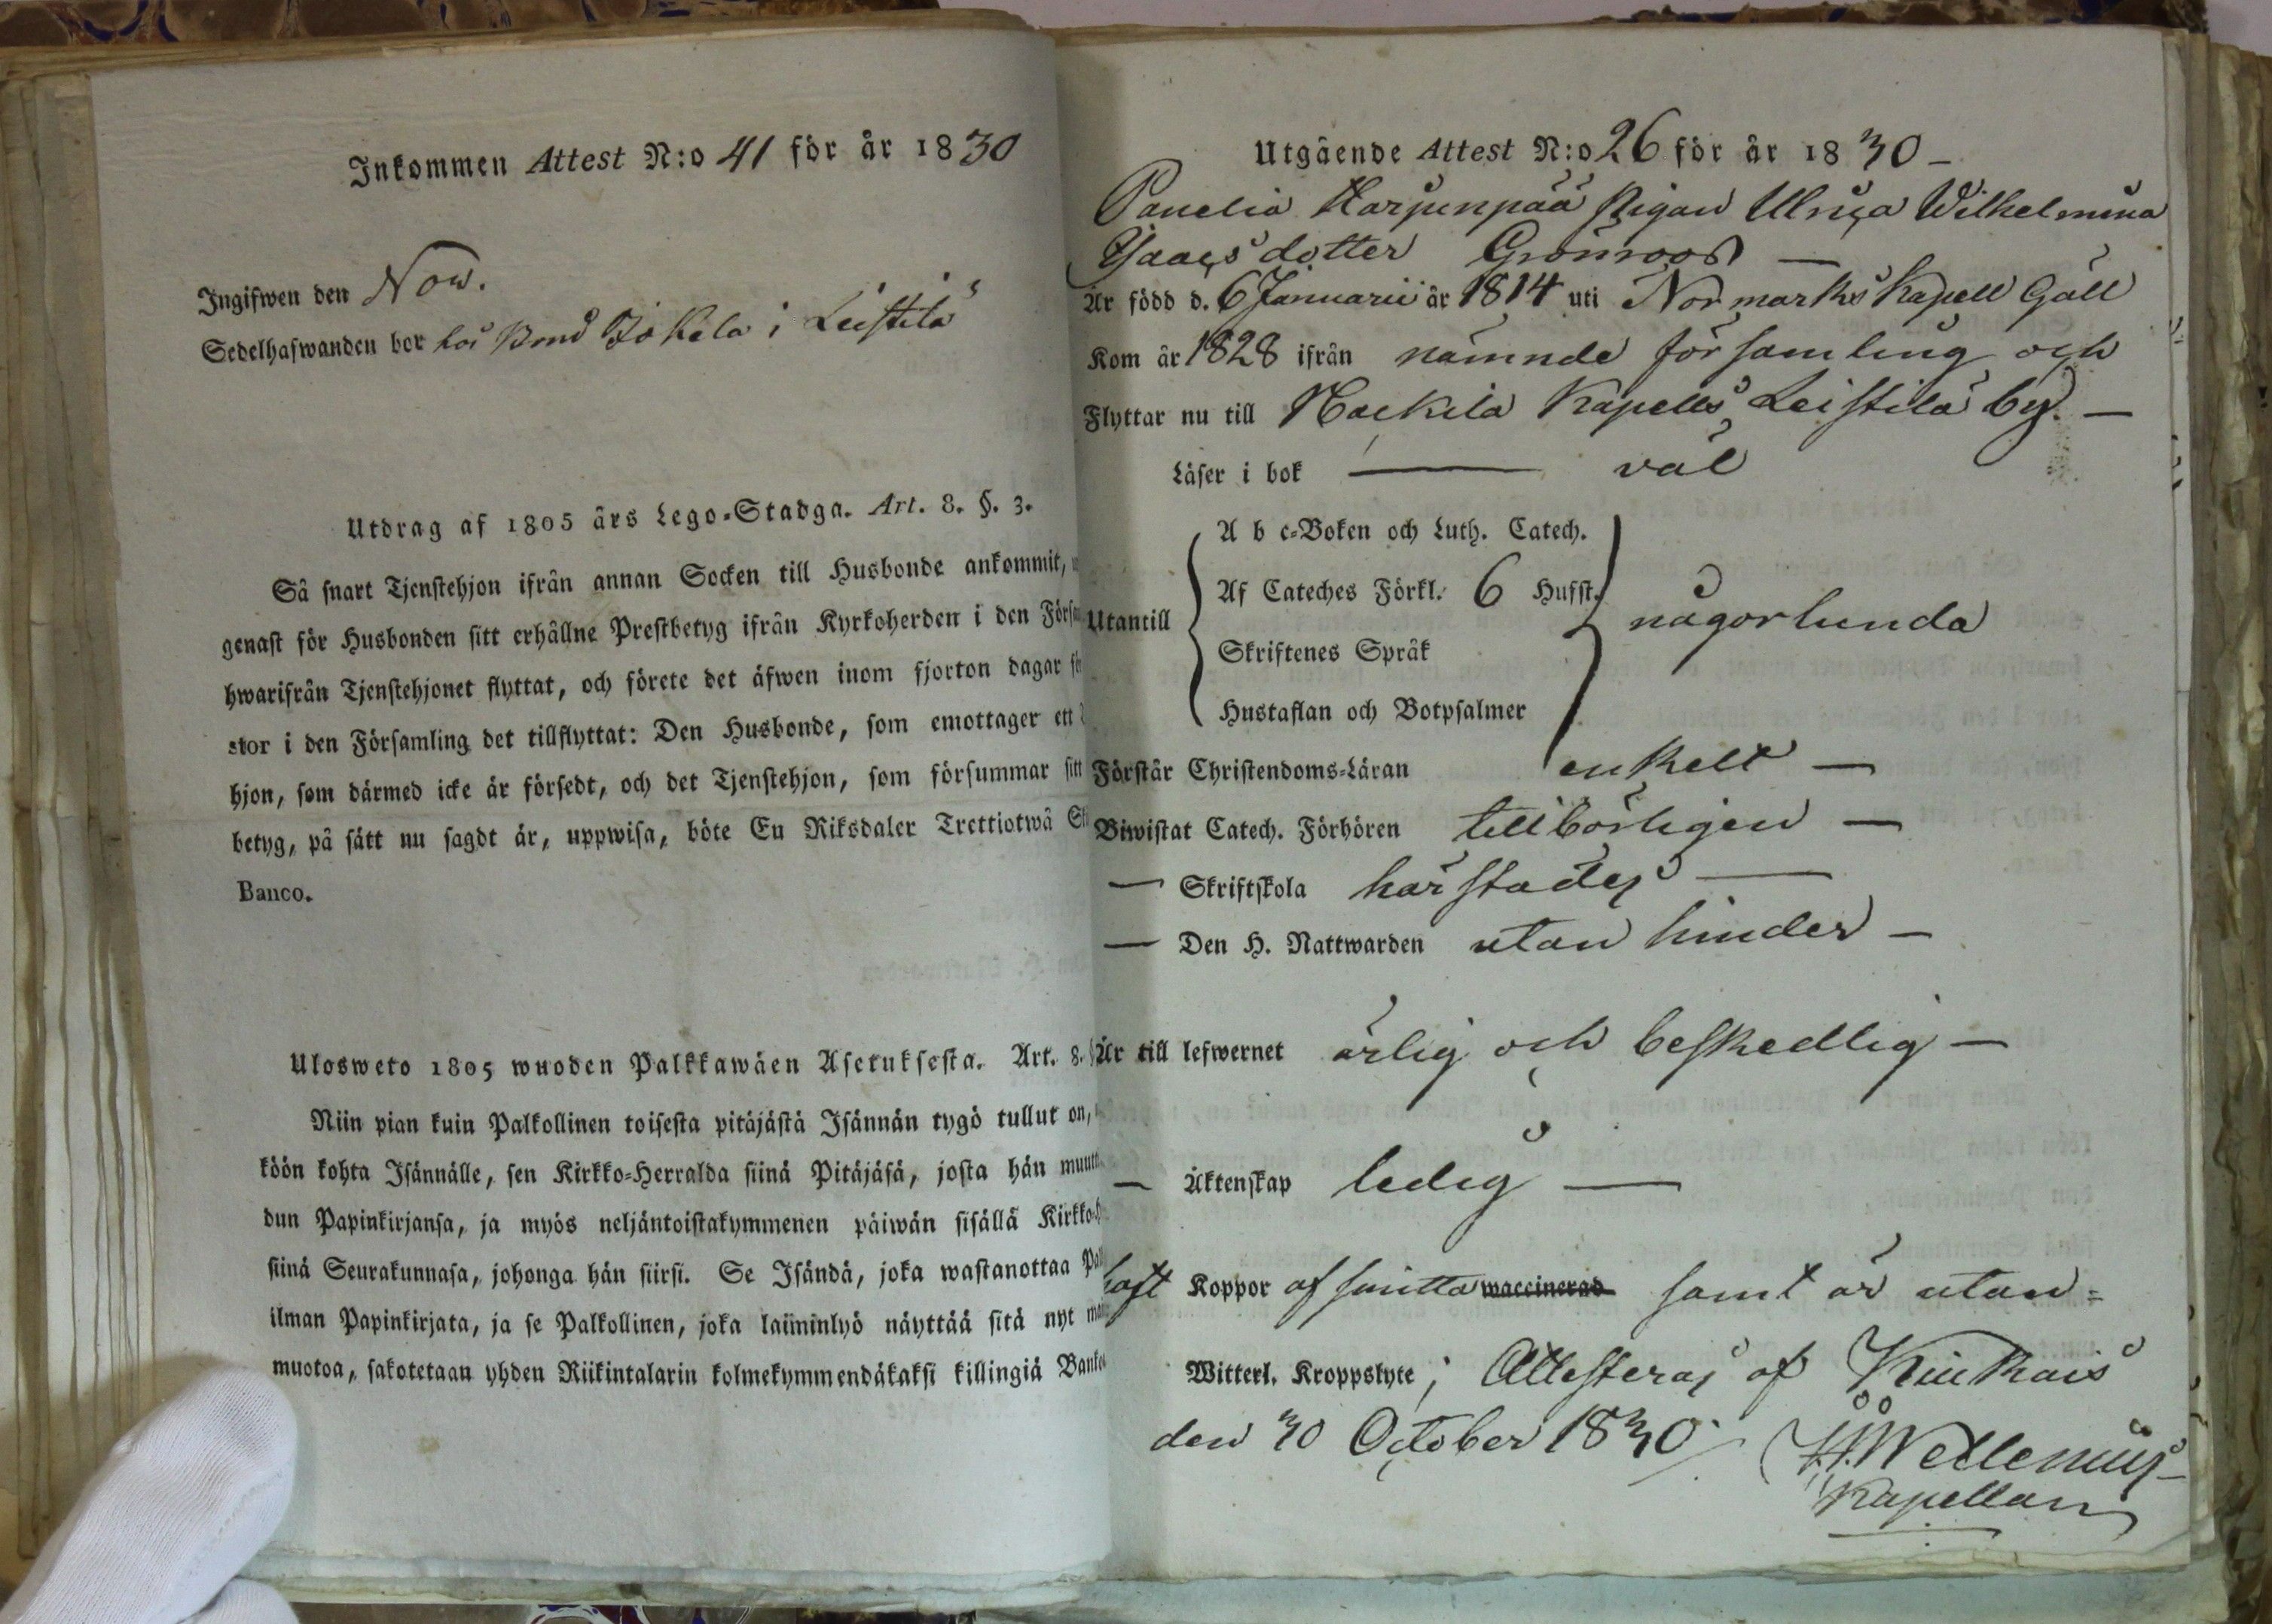 Inkommen Attest N:o 41 för år 1830
Ingifwen den Now.
Sedelhafwanden bor hos Bond Jokela i Leistilä
Utdrag af 1805 års Lego-Stadga. Art. 8. §. 3.
Så snart Tjenstehjon ifrån annan Socken till Husbonde ankommit,
genast för Husbonden sitt erhållne Prestbetyg ifrån Kyrkoherden i den
hwarifrån Tjenstehjonet flyttat, och förete det äfwen inom fjorton dagar
stor i den Församling det tillflyttat: Den Husbonde, som emottager ett
hjon, som därmed icke är försedt, och det Tjenstehjon, som försummar sitt
betyg, på sätt nu sagdt är, uppwisa, böte En Riksdaler Trettiotwå
Banco.
Ulosweto 1805 wuoden Palkkawäen Asetuksesta. Art. 8.
Niin pian kuin Palkollinen toisesta pitäjästä Isännän tygö tullut on,
köön kohta Isännälle, sen Kirkko-Herralda siinä Pitäjäsä, josta hän
dun Papinkirjansa, ja myös neljäntoistakymmenen päiwän sisällä
siinä Seurakunnasa, johonga hän siirsi. Se Isändä, joka wastanottaa
ilman Papinkirjata, ja se Palkollinen, joka laiminlyö näyttää sitä nyt
muotoa, sakotetaan yhden Riikintalarin kolmekymmendäkaksi killingiä
Utgående Attest N:o 26 för år 1830 -
Panelia Harjunpää Pigan Ulrica Wilhelmina
Isaacsdotter Grönroos —
Är född d. 6 Januarii år 1814 uti Norrmarks Kapell Gäll
Kom år 1828 ifrån nämnde församling och
Flyttar nu till Nackila Kapells Leistilä by. —
Läser i bok — väl
A b c-Boken och Luth. Catech.
Af Cateches Förkl. 6 Hufst.
Utantill
någorlunda
Skriftenes Språk
Hustaflan och Botpsalmer
Förstår Christendoms-Läran enkelt —
Biwistat Catech. Förhören tillbörligen —
— Skriftskola härstädes —
— Den H. Nattwarden utan hinder —
Är till lefwernet ärlig och beskedlig —
— Äktenskap ledig —
haft Koppor af smitta waccinerad samt är utan =
Witterl. Kroppslyte; Attesteras af Kiukais
den 30 October 1830.
Wellenius
Kapellan